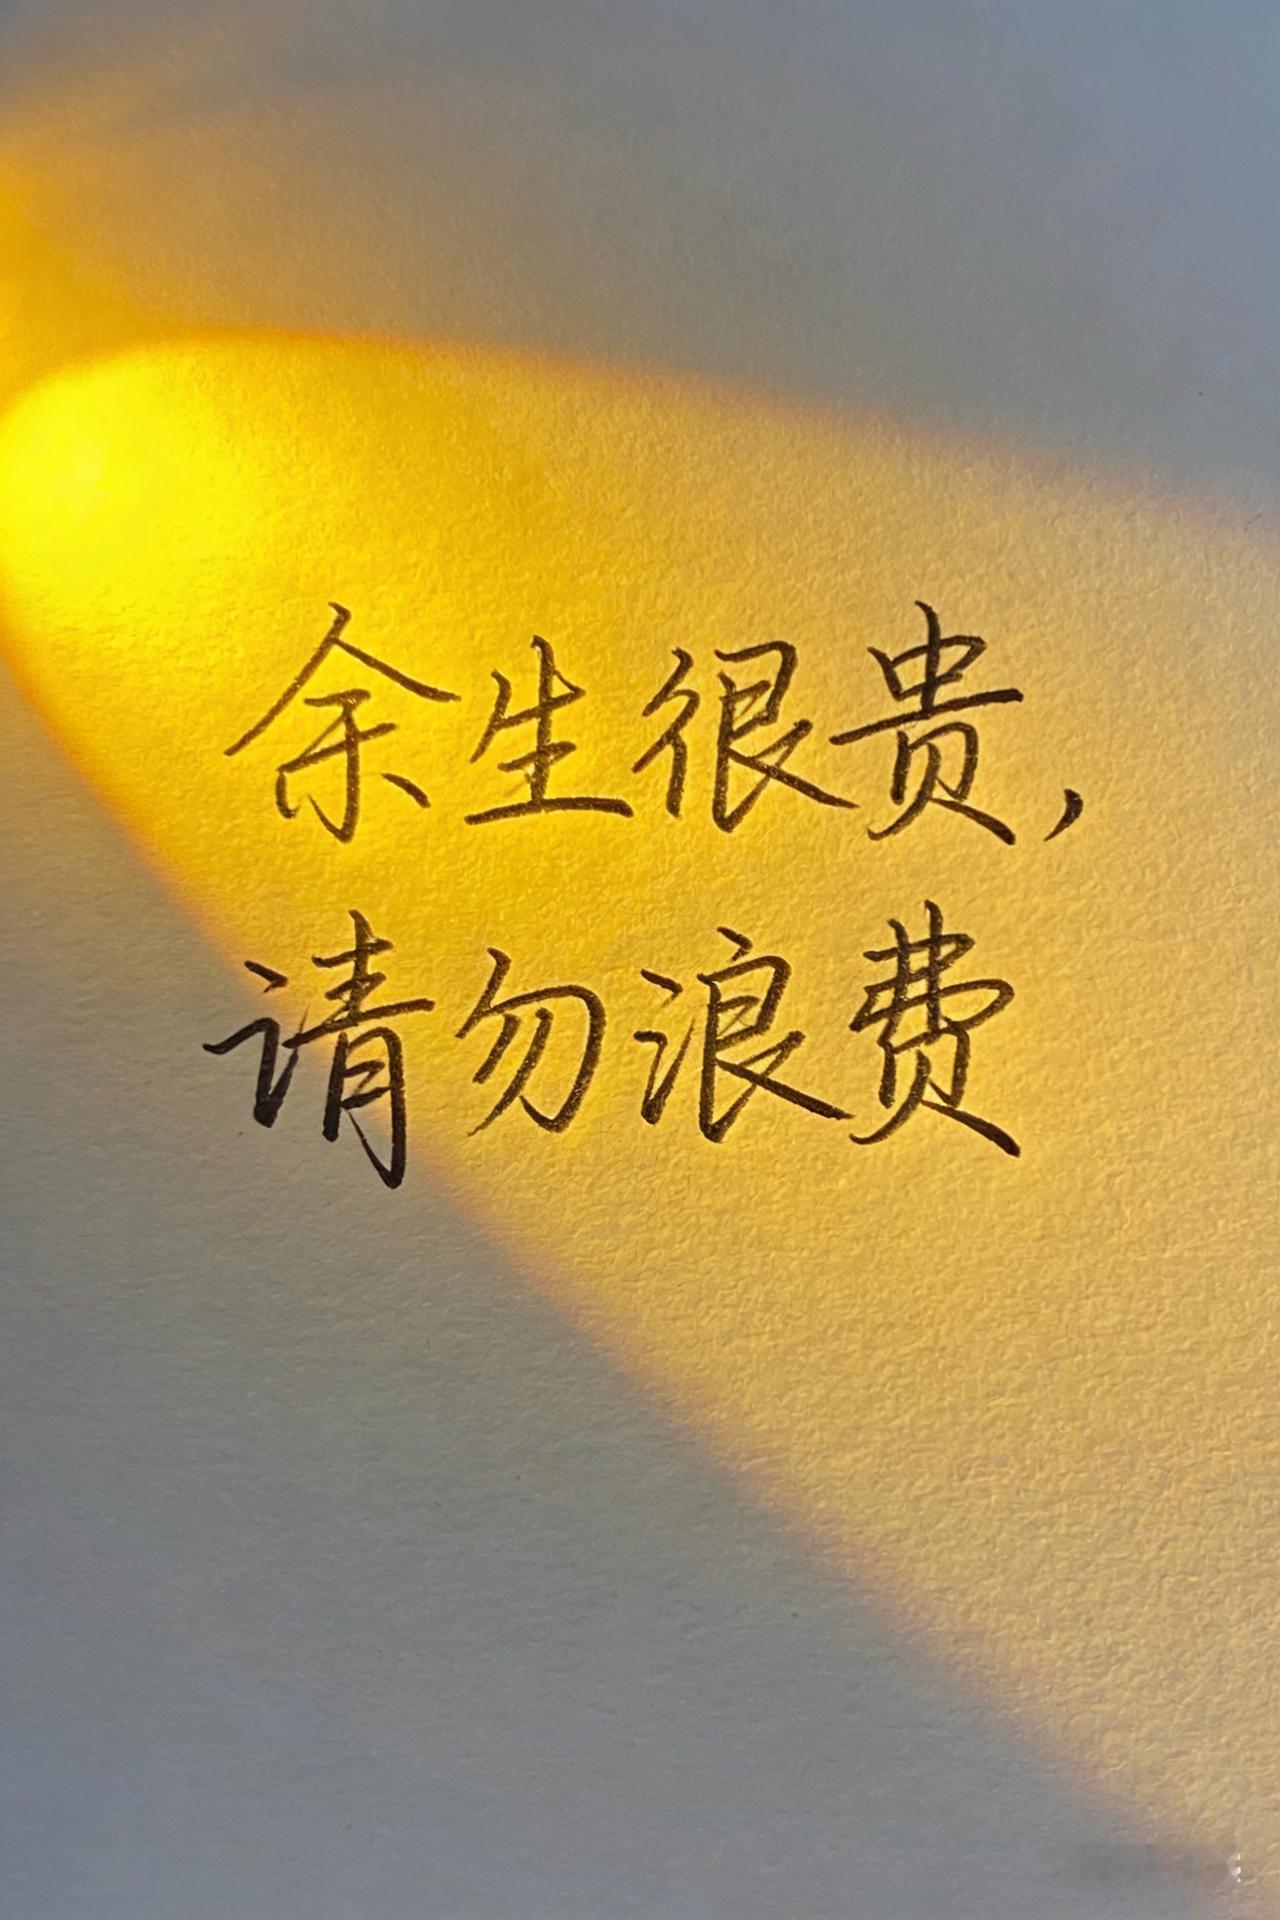 余生很贵，
请勿浪费